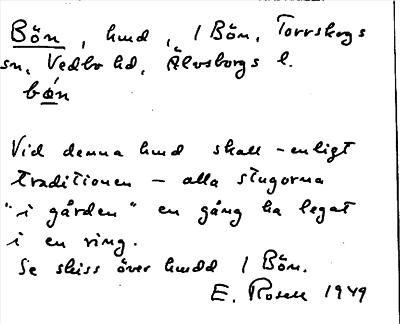 Bön, hmd, 1 Bön, Torrskogs
sn, Vedbo hd, Älvsborgs l.
bǿn
Vid denna hmd skall - enligt
traditionen - alla stugorna
"i gården" en gång ha legat
i en ring.
Se skiss över hmdd 1 Bön.
E. Rosell 1949